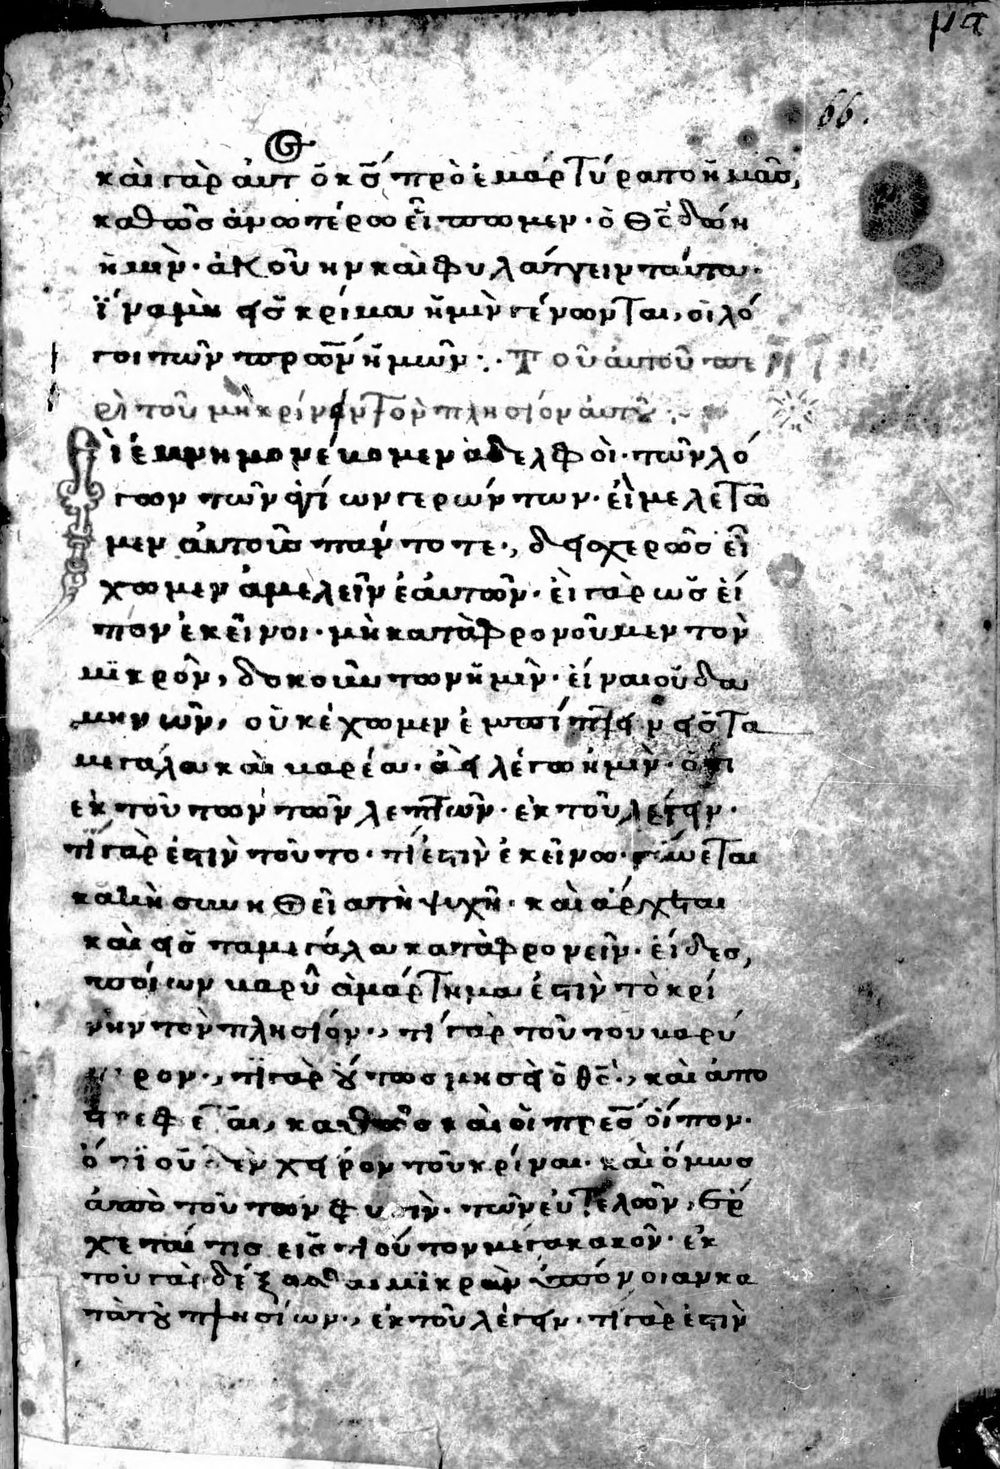 μα
66.
καὶ γὰρ ἀυτ ὁ κς προεμαρτύρατο ἡμᾶς,
καθὼς ἀνωτέρω εἴπωμεν· ὁ θς δώη
ἡμὴν· ἀκούην καὶ φυλάττειν ταύτα·
ἵνα μὴ εἰς κρίμα ἡμὶν γένωνται, οἱ λό
γοι τῶν πρῶν ἡμῶν :· Τοῦ ἀυτοῦ πε
ρὶ τοῦ μὴ κρίνειν τὸν πλησίον ἀυτοῦ
Εἰ ἐμνημονέυομεν ἀδελφοὶ· τῶν λό
γων τῶν ἁγίων γερώντων· εἰ μελετῶ
μεν ἀυτοὺς πάντοτε, δυσχερῶς εἴ
χωμεν ἀμελεῖν ἑαυτῶν· εἰ γὰρ ὡς εἶ
πον ἐκεῖνοι· μὴ καταφρονοῦμεν τὸν
μικρῶν, δοκούντων ἡμὶν· εἶναι οὐδα
μηνῶν, οὐκ έχωμεν ἐμπίπτειν εἰς τα
μεγάλα καὶ βαρέα· ἀεὶ λέγω ἡμὶν· ὅτι
ἐκ τούτων τῶν λεπτῶν· ἐκ τοῦ λέγειν·
τί γὰρ ἐστὶν τοῦτο· τί ἐστὶν ἐκεῖνω· γίνεται
κακὴ συνηθεία τὴ ψυχῆ· καὶ ἄρχεται
καὶ εἰς τα μεγάλα καταφρονεῖν· εἶδες,
πόσων βαρὺ ἁμάρτημα ἐστὶν τὸ κρί
νην τὸν πλησίον, τί γὰρ τούτου βαρύ
τερον, τί γὰρ οὕτως μησεῖ ὁ θς, καὶ ἀπο
στρεφεται, καθὼς καὶ οἱ πρες εἶπον·
ὅτι οὐδὲν χεῖρον τοῦ κρίναι· καὶ ὅμως
ἀπὸ τούτων φυσὶν· τῶν ἐυτελῶν, ἔρ
χεται τις εἰς τιούτον μέγα κακὸν· ἐκ
τοῦ γὰρ δέξασθαι μικρὰν ὑπόνοιαν κα
τὰ τοῦ πλησίων, ἐκ τοῦ λέγειν· τί γὰρ ἐστὶν